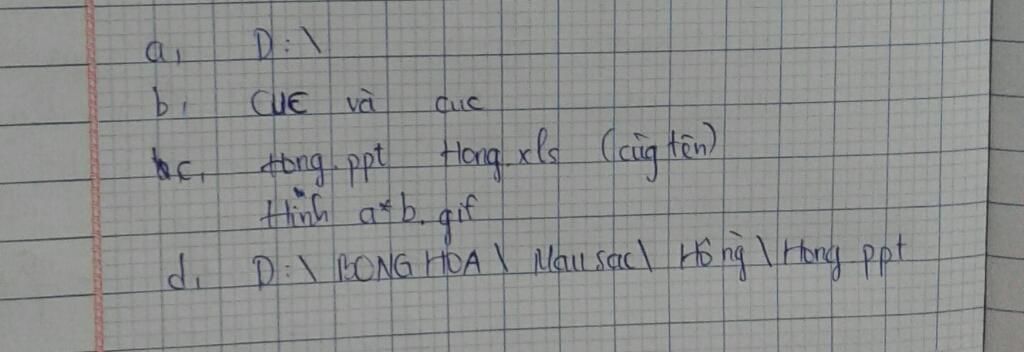 a, D:\
b, CUC và cuc
c, Hong.ppt Hong.xls (cùg tên)
Hình a*b.gif
d, D:\ BONG HOA \ Mau sac\ Hồng \ Hong ppt